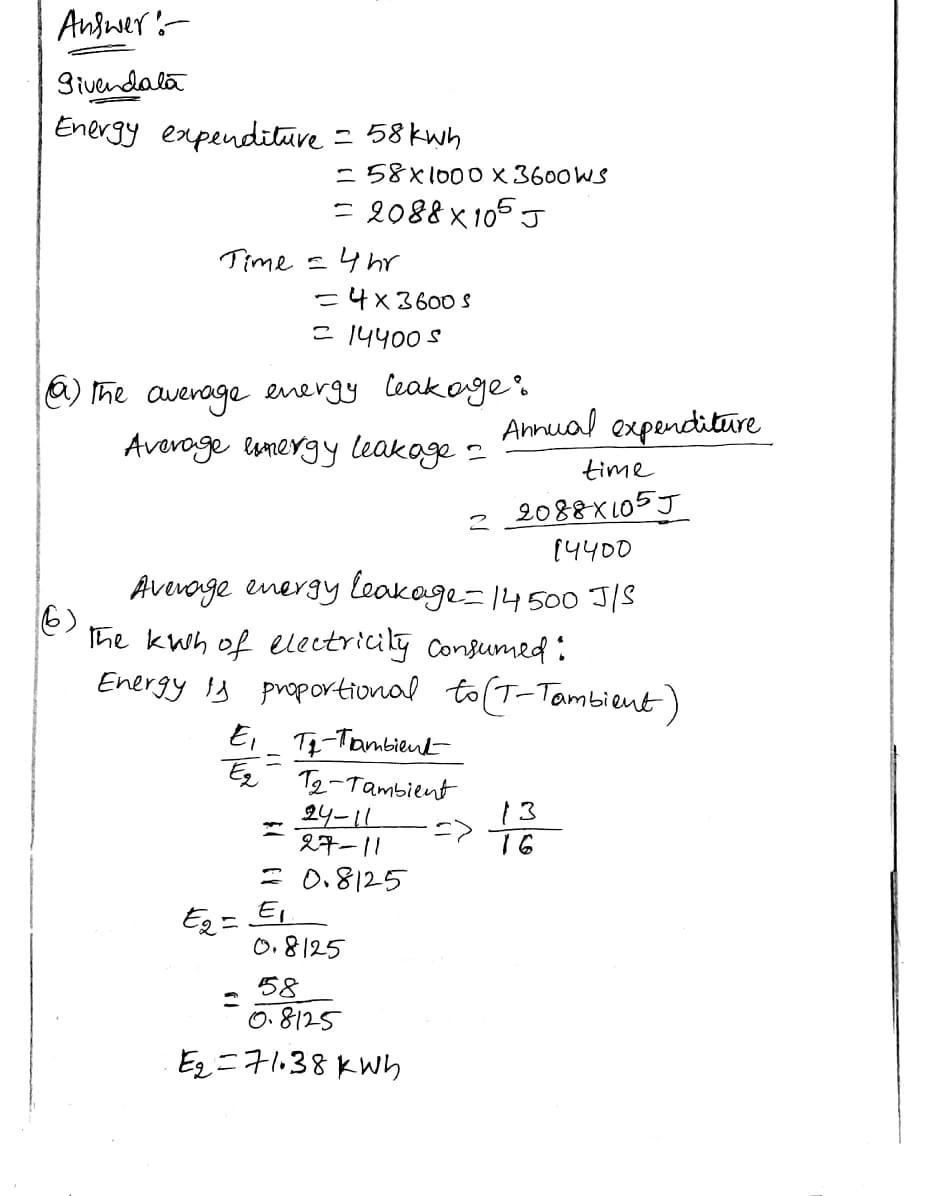 Answer :-
givendata
Energy expenditure = 58 kwh
= 58 x 1000 x 3600 WS
= 2088 x 10⁵ J
Time = 4 hr
= 4 x 3600 s
= 14400 s
(a) The average energy leakage:
Average energy leakage = Annual expenditure / time
= 2088 x 10⁵ J / 14400
Average energy leakage = 14500 J/S
(b) The kwh of electricity consumed :
Energy is proportional to (T - Tambient)
E₁ / E₂ = T₁ - Tambient / T₂ - Tambient
= 24 - 11 / 27 - 11 => 13 / 16
= 0.8125
E₂ = E₁ / 0.8125
= 58 / 0.8125
E₂ = 71.38 kWh